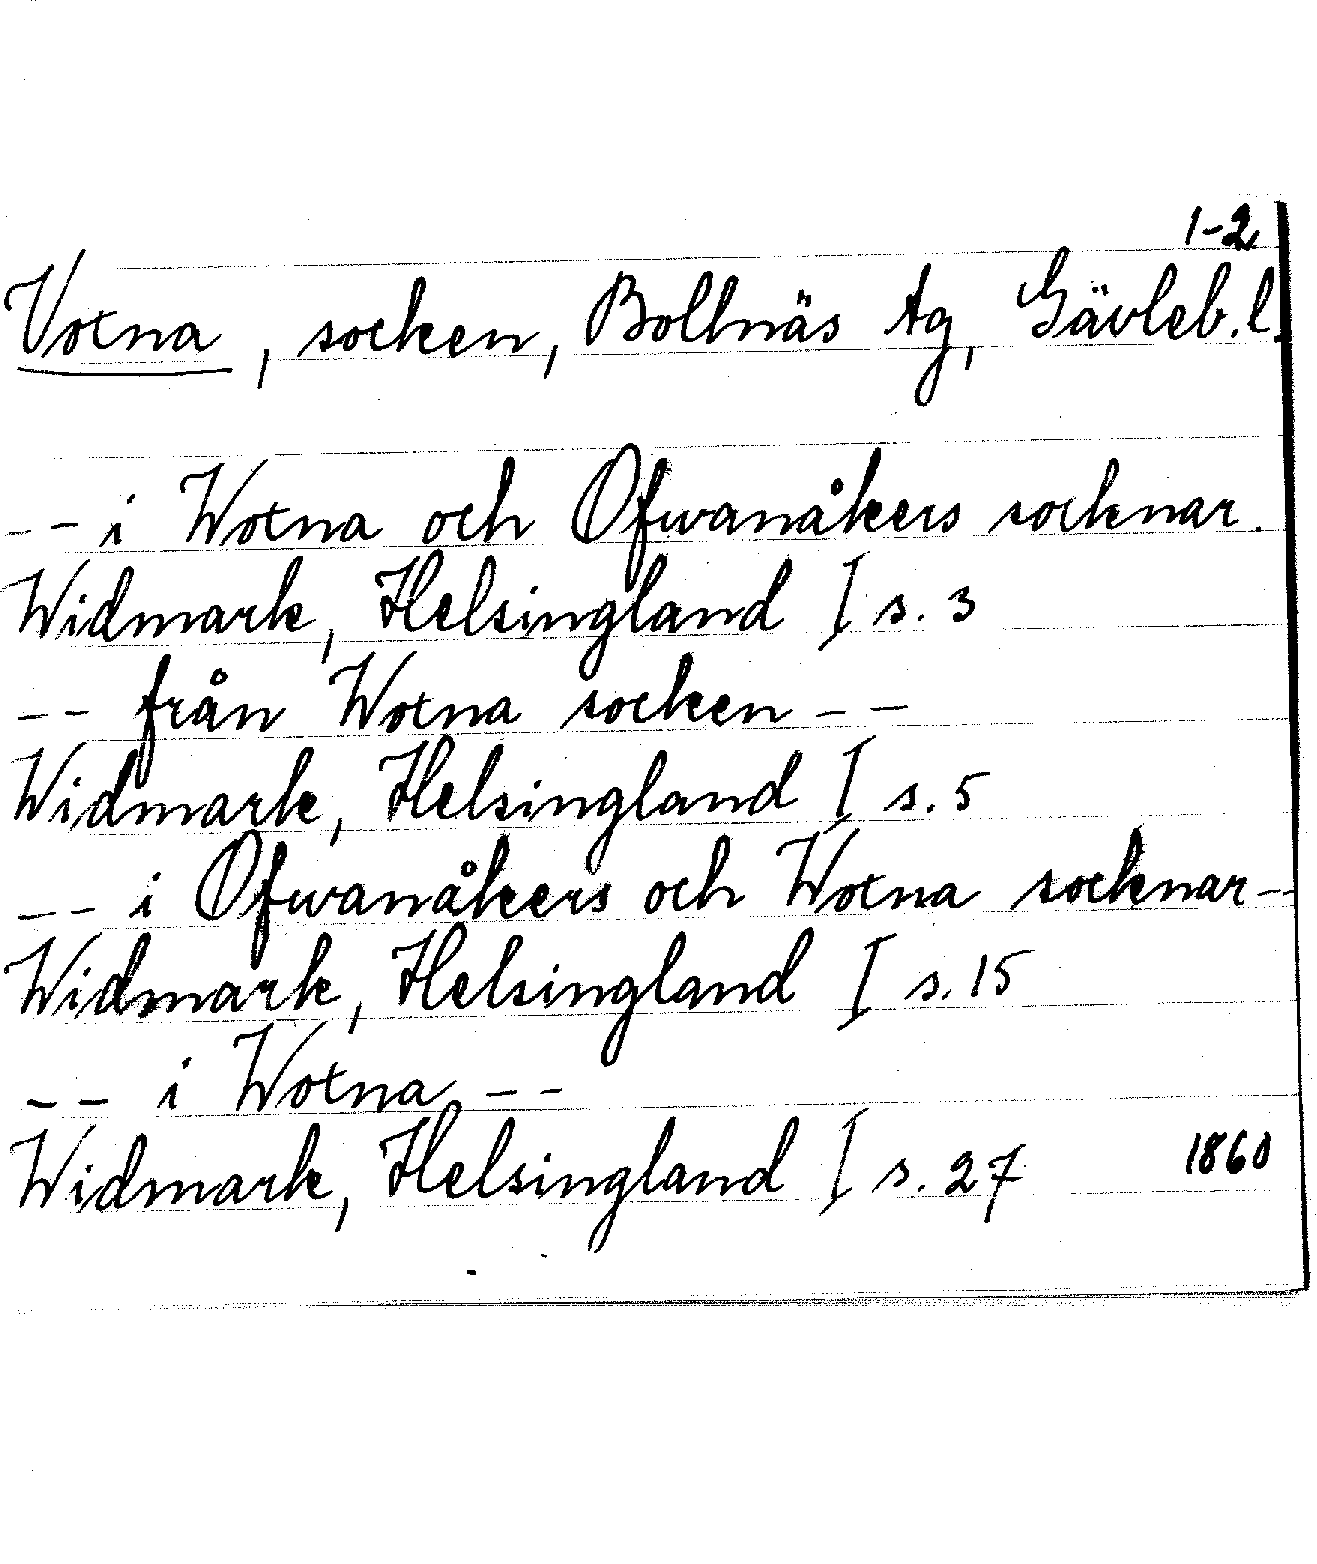 1-2
Voxna, socken, Bollnäs tg, Gävleb.l.
-- i Woxna och Ofwanåkers socknar.
Widmark, Helsingland I s. 3
-- från Woxna socken --
Widmark, Helsingland I s. 5
-- i Ofwanåkers och Woxna socknar --
Widmark, Helsingland I s. 15
-- i Woxna --
Widmark, Helsingland I s. 27 1860